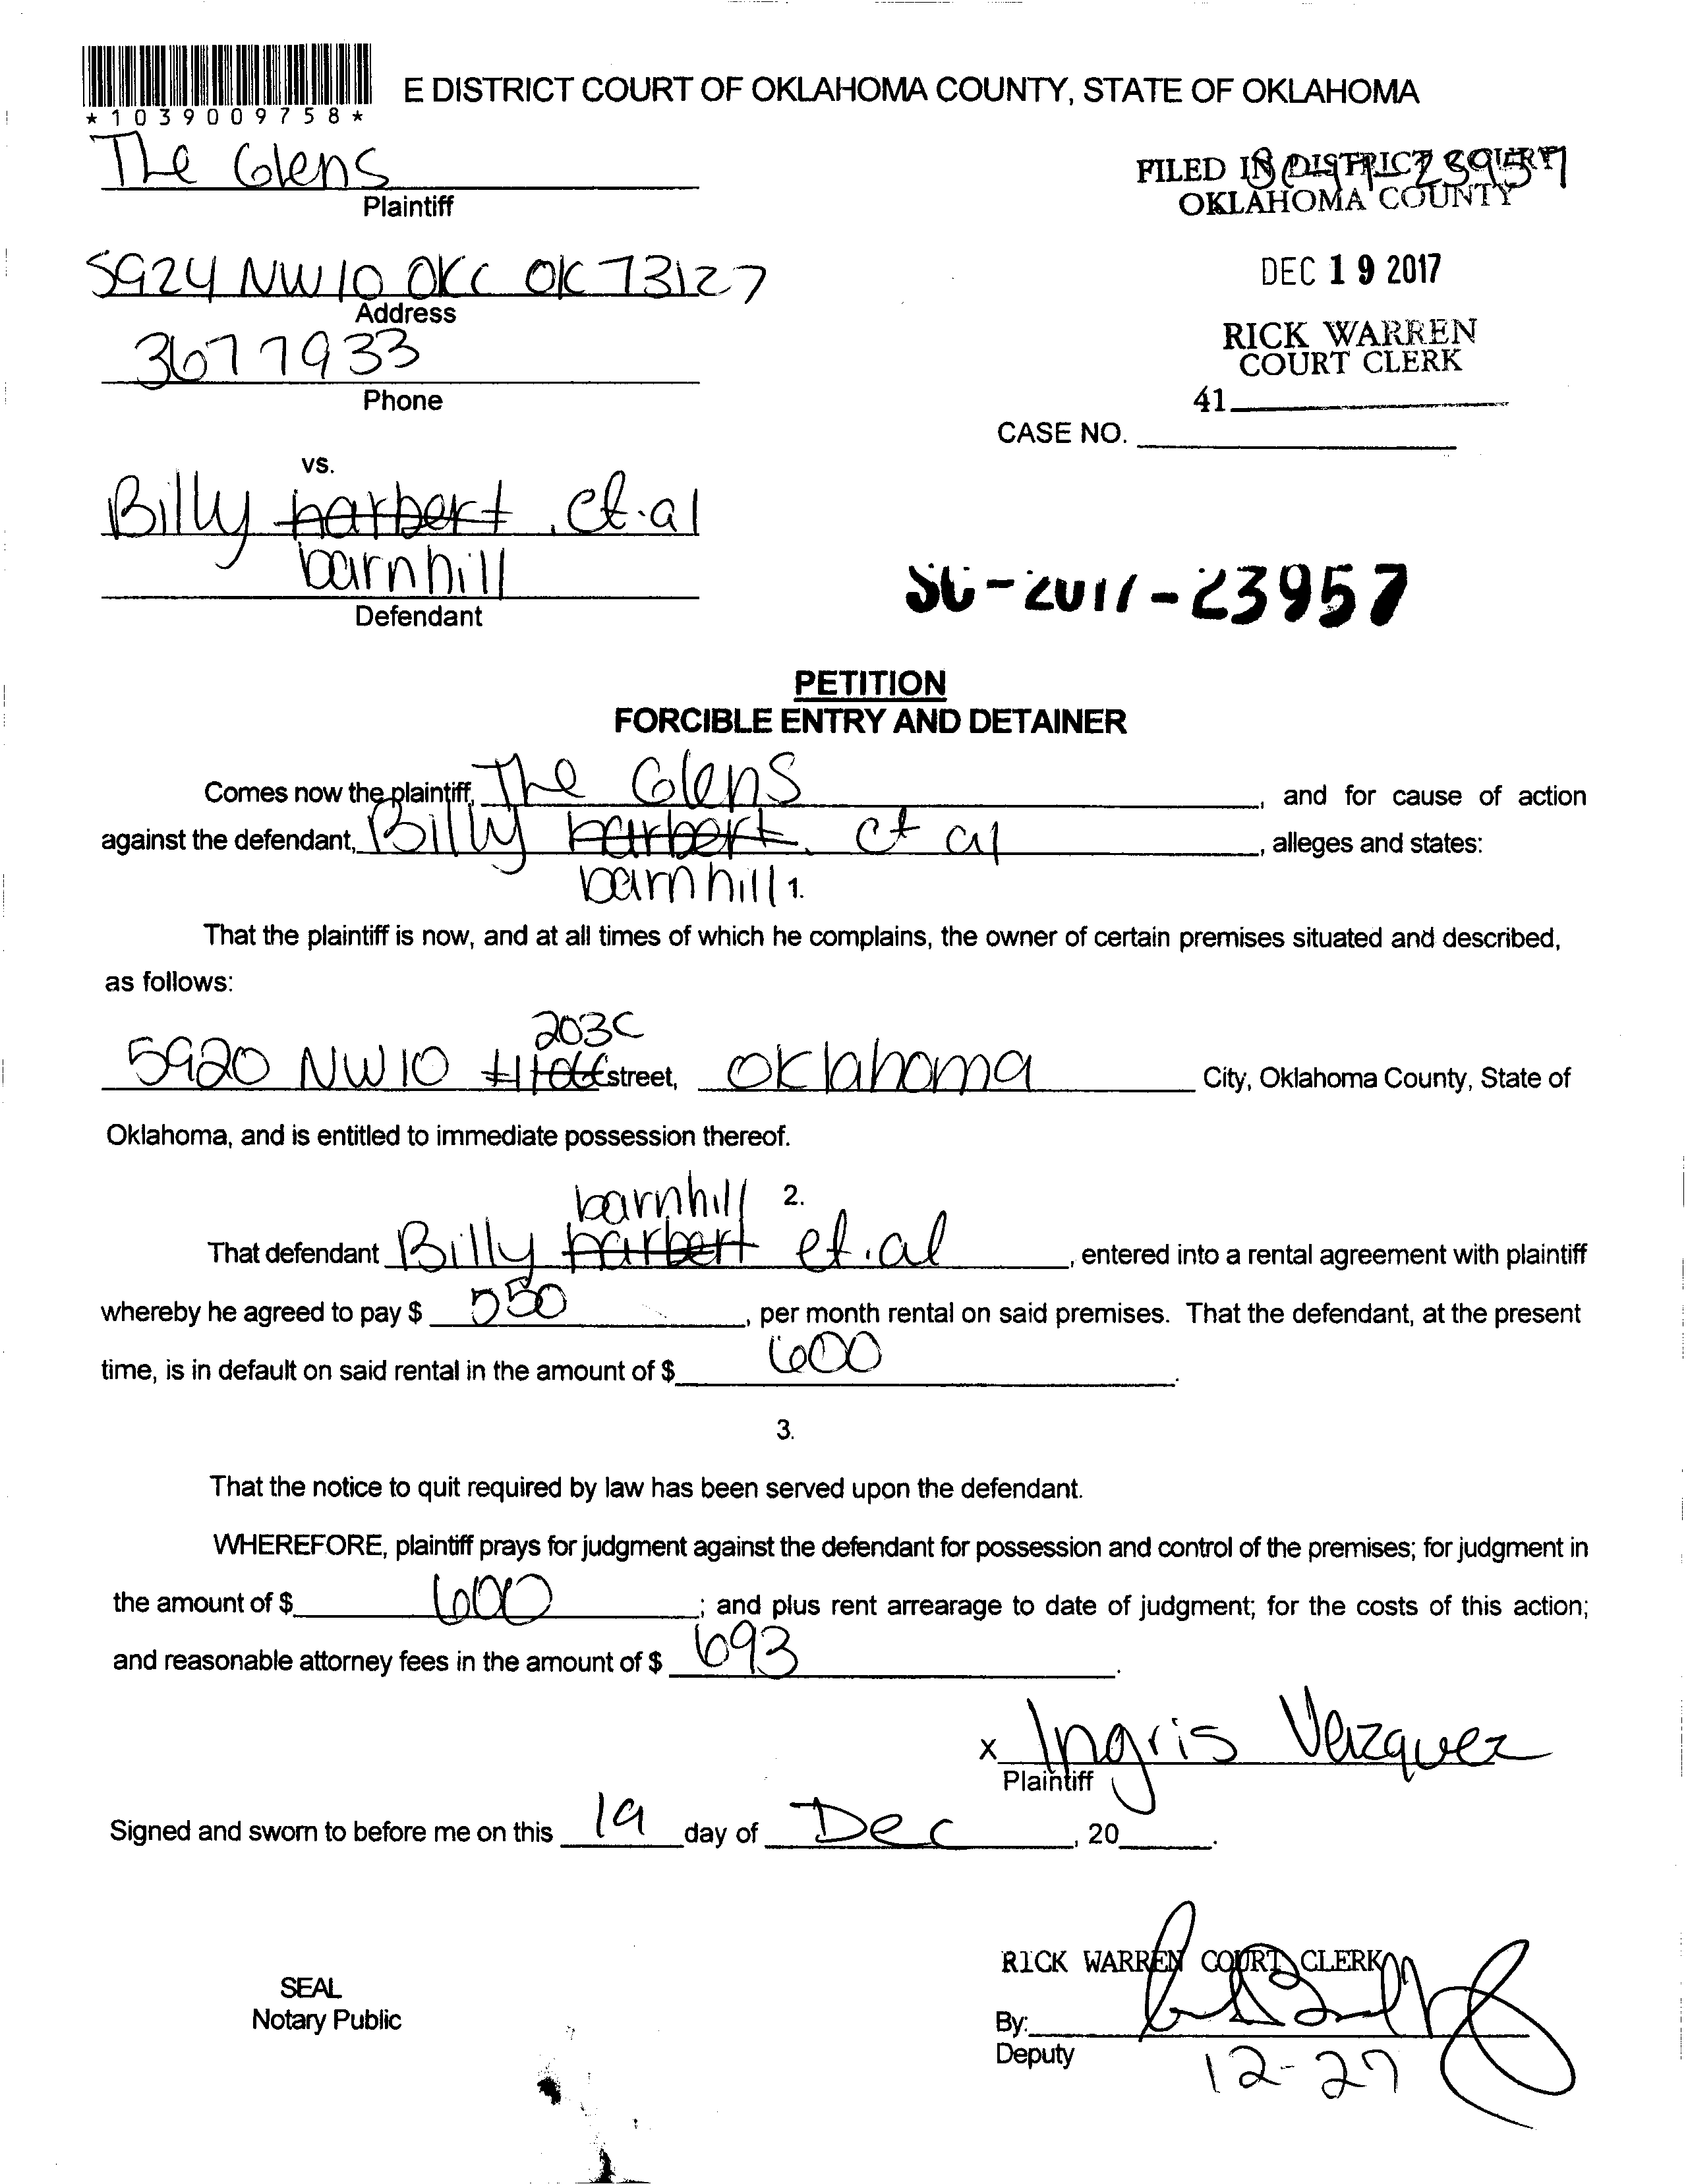 E DISTRICT COURT OF OKLAHOMA COUNTY, STATE OF OKLAHOMA
*1039009758*
The Glens
Plaintiff
FILED IN DISTRICT COURT
OKLAHOMA COUNTY
5924 NW 10 OKC OK 73127
Address
DEC 19 2017
3677933
Phone
RICK WARREN
COURT CLERK
41
CASE NO.
vs.
Billy harbert, et.al
barnhill
Defendant
SC-2017-23957
PETITION
FORCIBLE ENTRY AND DETAINER
Comes now the plaintiff, The Glens, and for cause of action
against the defendant, Billy harbert, et al, alleges and states:
barnhill 1.
That the plaintiff is now, and at all times of which he complains, the owner of certain premises situated and described,
as follows:
203C
5920 NW 10 # street, oklahoma City, Oklahoma County, State of
Oklahoma, and is entitled to immediate possession thereof.
barnhill 2.
That defendant Billy harbert et.al, entered into a rental agreement with plaintiff
whereby he agreed to pay $ 550, per month rental on said premises. That the defendant, at the present
time, is in default on said rental in the amount of $ 600.
3.
That the notice to quit required by law has been served upon the defendant.
WHEREFORE, plaintiff prays for judgment against the defendant for possession and control of the premises; for judgment in
the amount of $ 600; and plus rent arrearage to date of judgment; for the costs of this action;
and reasonable attorney fees in the amount of $ 693.
x Ingris Vazquez
Plaintiff
Signed and sworn to before me on this 19 day of Dec, 20.
RICK WARREN COURT CLERK
SEAL
Notary Public
By:
Deputy
12-27